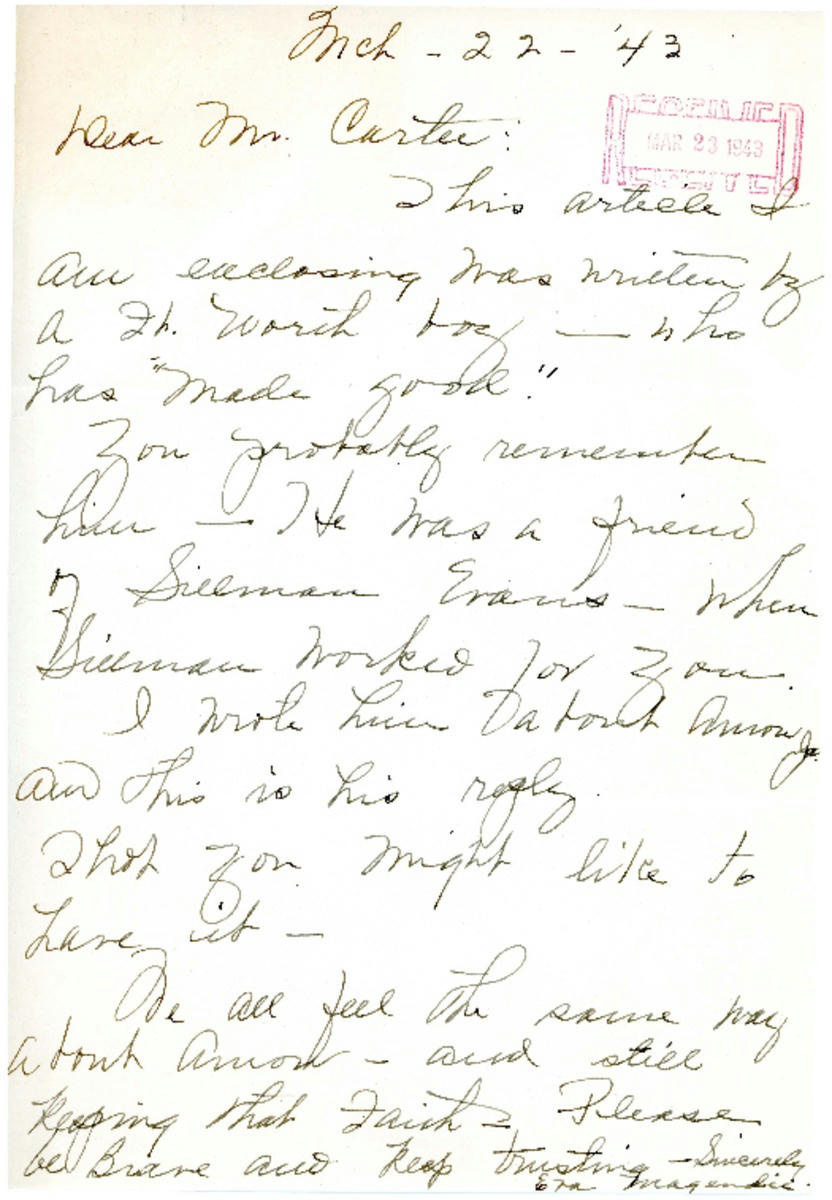 Mch - 22 - '43
Dear Mr. Carter:
RECEIVED
MAR 23 1943
This article I
am enclosing was written by
a Ft. Worth boy — who
has "made good."
You probably remember
him — He was a friend
of Silliman Evans — when
Silliman worked for you.
I wrote him about Amon Jr.
and this is his reply.
Thot you might like to
have it —
We all feel the same way
about Amon — and still
keeping that Faith — Please
be Brave and keep trusting — Sincerely
Eva